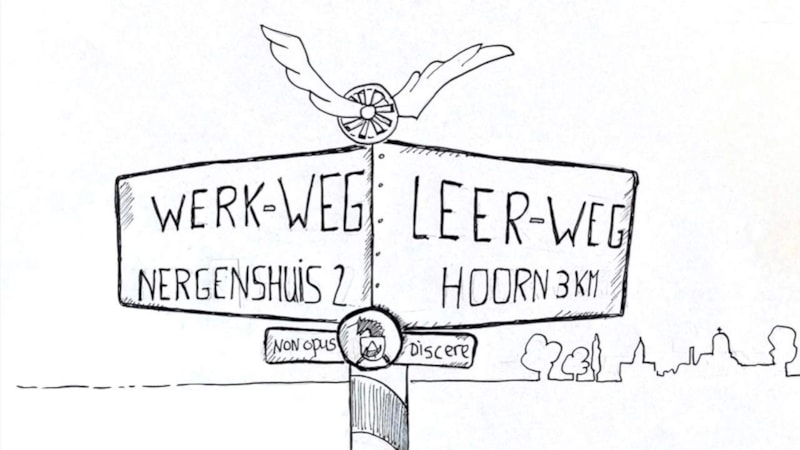 WERK-WEG
NERGENSHUIS 2
LEER-WEG
HOORN 3 KM
NON opus
Discere